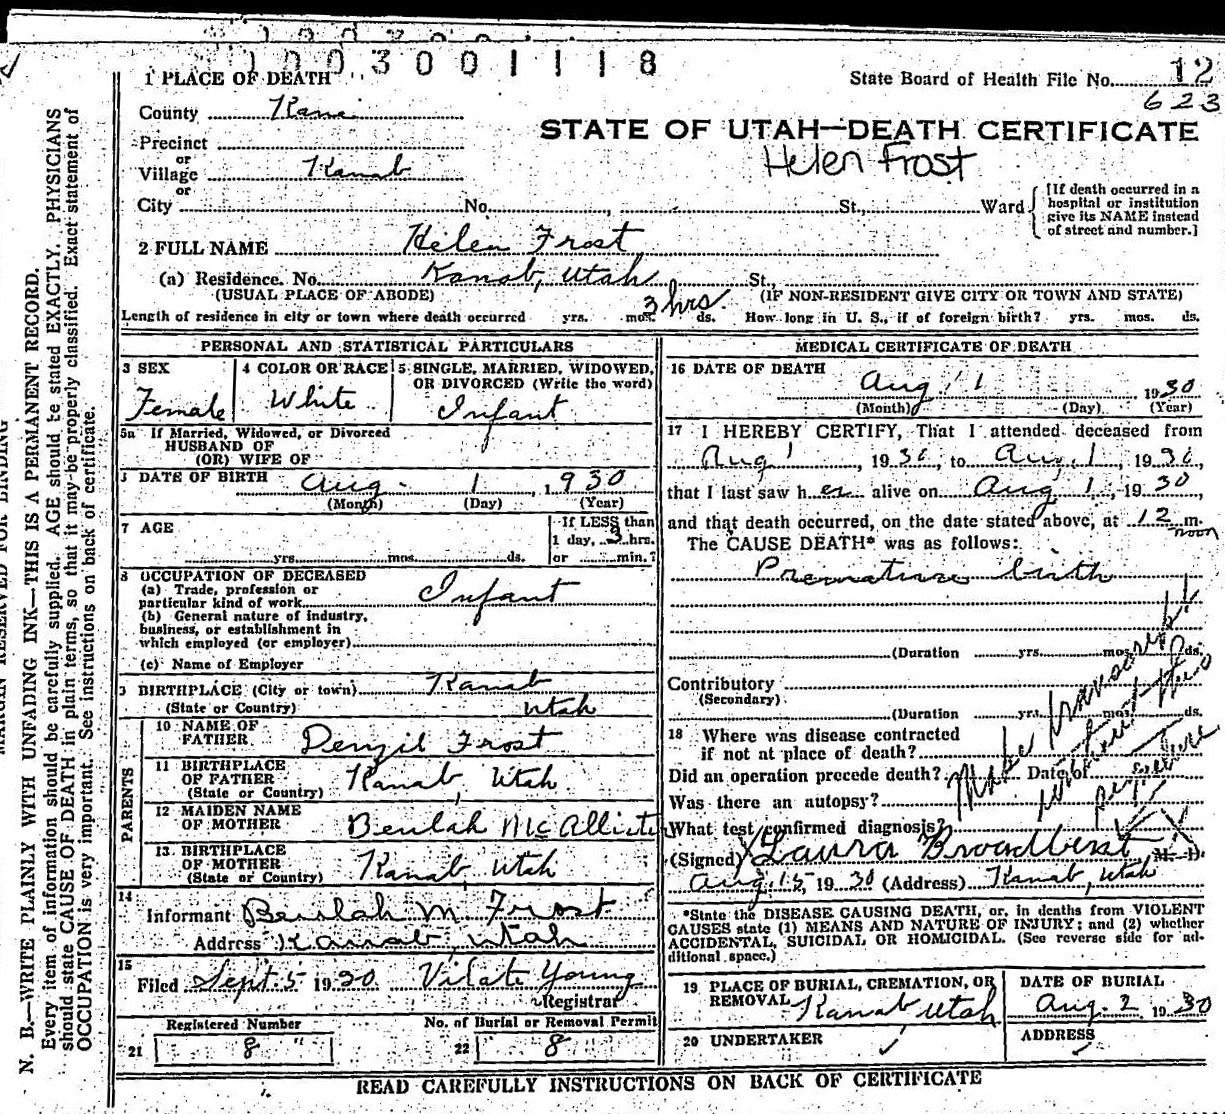 1003001118
1 PLACE OF DEATH
State Board of Health File No. 12
623
County Kane
STATE OF UTAH—DEATH CERTIFICATE
Helen Frost
Precinct
or
Village Kanab
or
City No. St., Ward
[If death occurred in a
hospital or institution
give its NAME instead
of street and number.]
2 FULL NAME Helen Frost
(a) Residence. No. Kanab, Utah St.,
(USUAL PLACE OF ABODE) (IF NON-RESIDENT GIVE CITY OR TOWN AND STATE)
3 hrs
Length of residence in city or town where death occurred yrs. mos. ds. How long in U. S., if of foreign birth? yrs. mos. ds.
PERSONAL AND STATISTICAL PARTICULARS
3 SEX
Female
4 COLOR OR RACE
White
5 SINGLE, MARRIED, WIDOWED,
OR DIVORCED (Write the word)
Infant
5a If Married, Widowed, or Divorced
HUSBAND OF
(OR) WIFE OF
DATE OF BIRTH Aug. 1 1930
(Month) (Day) (Year)
7 AGE
yrs. mos. ds.
If LESS than
1 day, 3 hrs.
or min.?
8 OCCUPATION OF DECEASED
(a) Trade, profession or
particular kind of work Infant
(b) General nature of industry,
business, or establishment in
which employed (or employer)
(c) Name of Employer
9 BIRTHPLACE (City or town) Kanab
(State or Country) Utah
PARENTS
10 NAME OF
FATHER Denzil Frost
11 BIRTHPLACE
OF FATHER Kanab, Utah
(State or Country)
12 MAIDEN NAME
OF MOTHER Beulah McAllister
13 BIRTHPLACE
OF MOTHER Kanab, Utah
(State or Country)
14
Informant Beulah M. Frost
Address Kanab, Utah
15
Filed Sept. 5 1930 Vilate Young
Registrar
Registered Number
21 8
No. of Burial or Removal Permit
22 8
MEDICAL CERTIFICATE OF DEATH
16 DATE OF DEATH
Aug 1 1930
(Month) (Day) (Year)
17 I HEREBY CERTIFY, That I attended deceased from
Aug 1, 1930, to Aug. 1, 1930,
that I last saw her alive on Aug 1, 1930,
and that death occurred, on the date stated above, at 12 m.
noon
The CAUSE DEATH* was as follows:
Premature birth
(Duration yrs. mos. ds.
Contributory
(Secondary)
(Duration yrs. mos. ds.
18 Where was disease contracted
if not at place of death?
Did an operation precede death? Date of
Was there an autopsy?
What test confirmed diagnosis?
Make transcript
without
(Signed) Laura Broadbent M. D.
Aug. 15, 1930 (Address) Kanab, Utah
*State the DISEASE CAUSING DEATH, or, in deaths from VIOLENT
CAUSES state (1) MEANS AND NATURE OF INJURY; and (2) whether
ACCIDENTAL, SUICIDAL OR HOMICIDAL. (See reverse side for ad-
ditional space.)
19 PLACE OF BURIAL, CREMATION, OR
REMOVAL Kanab Utah
DATE OF BURIAL
Aug. 2 1930
20 UNDERTAKER
ADDRESS
READ CAREFULLY INSTRUCTIONS ON BACK OF CERTIFICATE
MARGIN RESERVED FOR BINDING
N. B.—WRITE PLAINLY WITH UNFADING INK—THIS IS A PERMANENT RECORD.
Every item of information should be carefully supplied. AGE should be stated EXACTLY. PHYSICIANS
should state CAUSE OF DEATH in plain terms, so that it may be properly classified. Exact statement of
OCCUPATION is very important. See instructions on back of certificate.